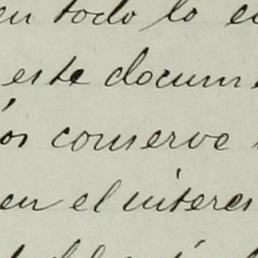 en todo lo e
este docum
os conserve
en el interes